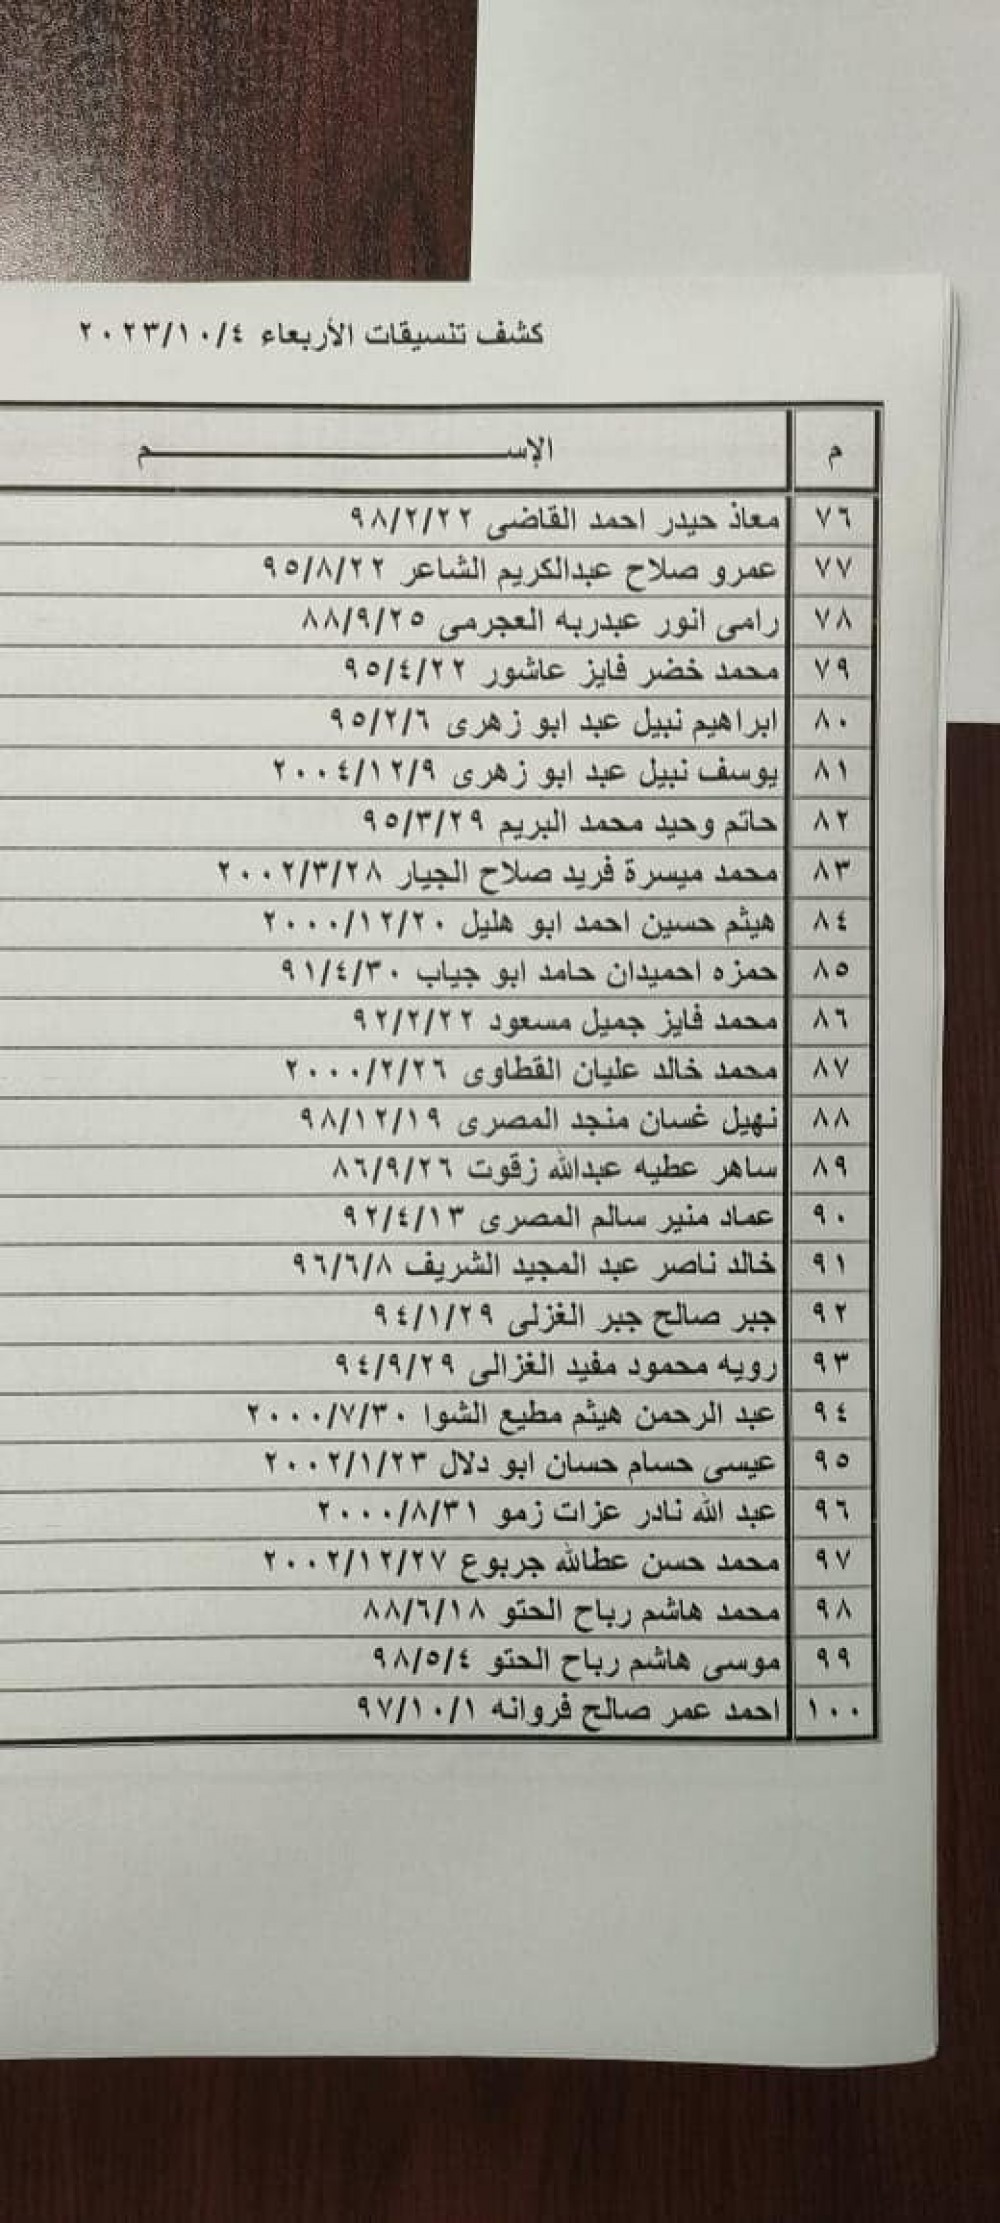 كشف تنسيقات الأربعاء ٢٠٢٣/١٠/٤
م الإســـــــــــــــــــــم
٧٦ معاذ حيدر احمد القاضى ٩٨/٢/٢٢
٧٧ عمرو صلاح عبدالكريم الشاعر ٩٥/٨/٢٢
٧٨ رامى انور عبدربه العجرمى ٨٨/٩/٢٥
٧٩ محمد خضر فايز عاشور ٩٥/٤/٢٢
٨٠ ابراهيم نبيل عبد ابو زهرى ٩٥/٢/٦
٨١ يوسف نبيل عبد ابو زهرى ٢٠٠٤/١٢/٩
٨٢ حاتم وحيد محمد البريم ٩٥/٣/٢٩
٨٣ محمد ميسرة فريد صلاح الجيار ٢٠٠٢/٣/٢٨
٨٤ هيثم حسين احمد ابو هليل ٢٠٠٠/١٢/٢٠
٨٥ حمزه احميدان حامد ابو جياب ٩١/٤/٣٠
٨٦ محمد فايز جميل مسعود ٩٢/٢/٢٢
٨٧ محمد خالد عليان القطاوى ٢٠٠٠/٢/٢٦
٨٨ نهيل غسان منجد المصرى ٩٨/١٢/١٩
٨٩ ساهر عطيه عبدالله زقوت ٨٦/٩/٢٦
٩٠ عماد منير سالم المصرى ٩٢/٤/١٣
٩١ خالد ناصر عبد المجيد الشريف ٩٦/٦/٨
٩٢ جبر صالح جبر الغزلى ٩٤/١/٢٩
٩٣ رويه محمود مفيد الغزالى ٩٤/٩/٢٩
٩٤ عبد الرحمن هيثم مطيع الشوا ٢٠٠٠/٧/٣٠
٩٥ عيسى حسام حسان ابو دلال ٢٠٠٢/١/٢٣
٩٦ عبد الله نادر عزات زمو ٢٠٠٠/٨/٣١
٩٧ محمد حسن عطالله جربوع ٢٠٠٢/١٢/٢٧
٩٨ محمد هاشم رباح الحتو ٨٨/٦/١٨
٩٩ موسى هاشم رباح الحتو ٩٨/٥/٤
١٠٠ احمد عمر صالح فروانه ٩٧/١٠/١